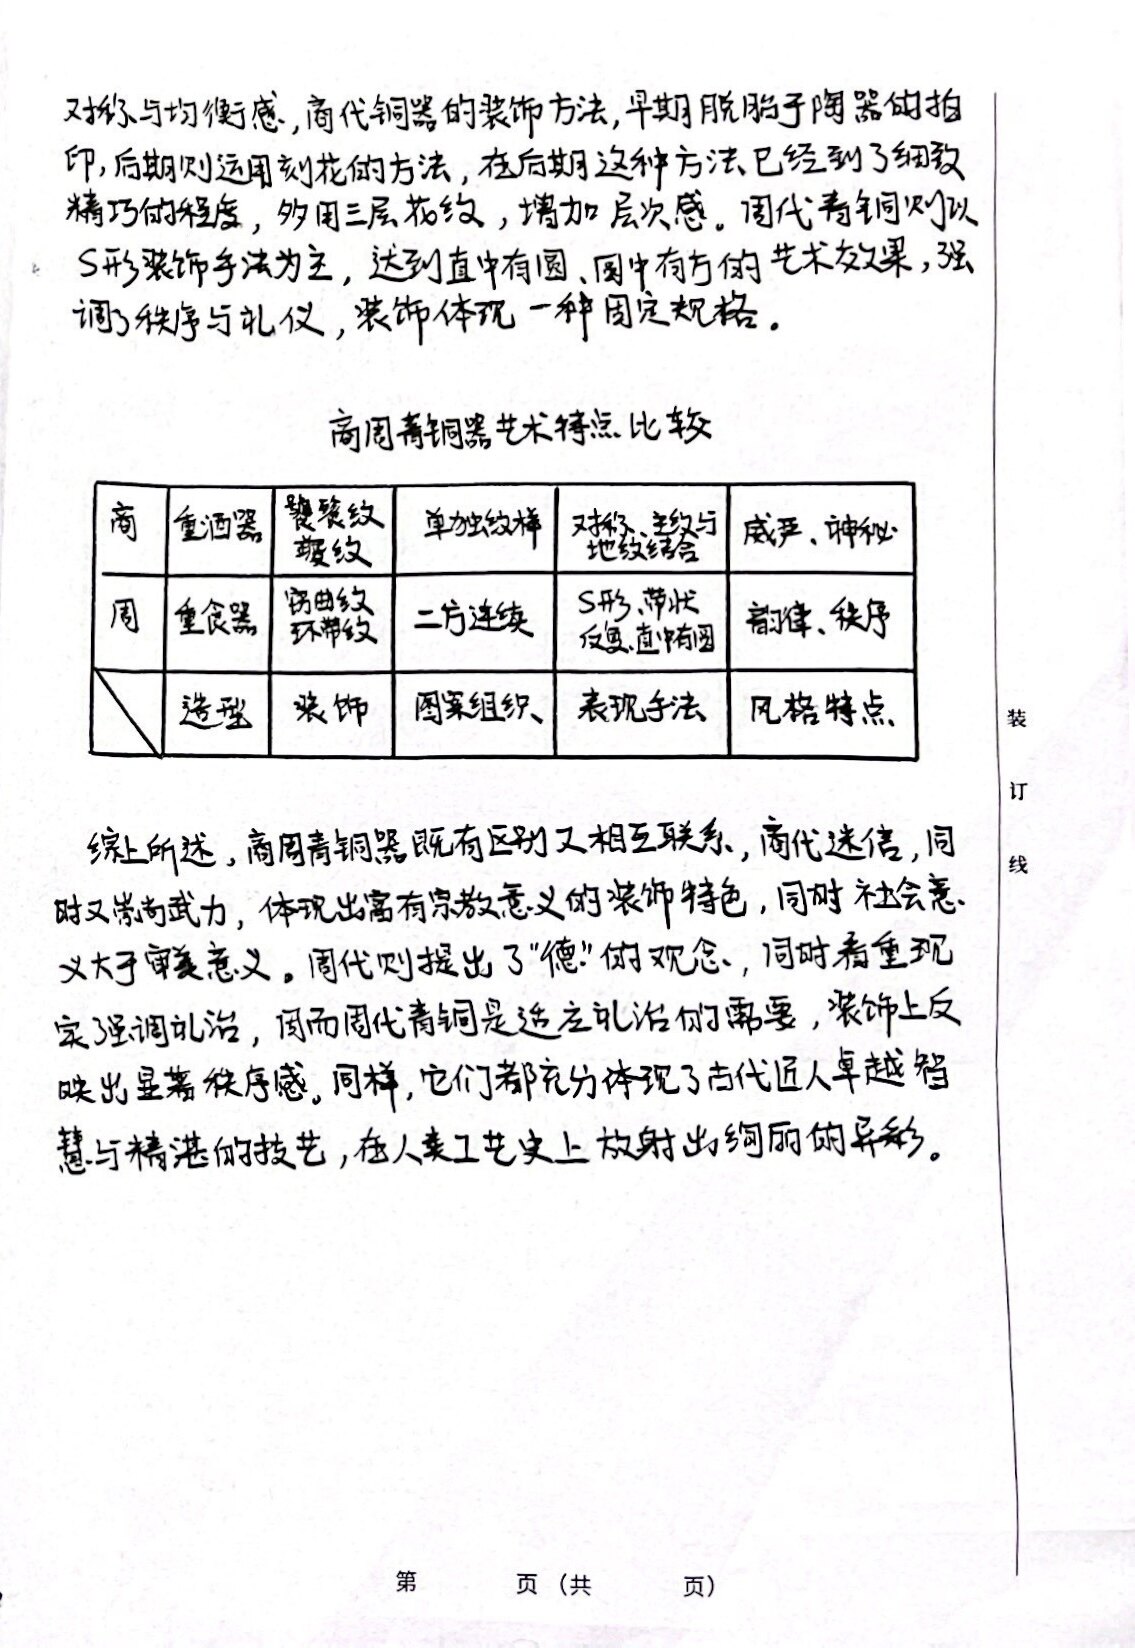 对称与均衡感，商代铜器的装饰方法，早期脱胎于陶器的拍
印，后期则运用刻花的方法，在后期这种方法已经到了细致
精巧的程度，多用三层花纹，增加层次感。周代青铜则以
S形装饰手法为主，达到直中有圆、圆中有方的艺术效果，强
调了秩序与礼仪，装饰体现一种固定规格。
商周青铜器艺术特点比较
商 重酒器 饕餮纹 夔纹 单独纹样 对称、主纹与地纹结合 威严、神秘
周 重食器 窃曲纹 环带纹 二方连续 S形、带状 反复、直中有圆 韵律、秩序
造型 装饰 图案组织、 表现手法 风格特点、
综上所述，商周青铜器既有区别又相互联系，商代迷信，同
时又崇尚武力，体现出富有宗教意义的装饰特色，同时社会意
义大于审美意义。周代则提出了“德”的观念，同时看重现
实了强调礼治，因而周代青铜是适应礼治的需要，装饰上反
映出显著秩序感。同样，它们都充分体现了古代匠人卓越智
慧与精湛的技艺，在人类工艺史上放射出绚丽的异彩。
装
订
线
第 页（共 页）